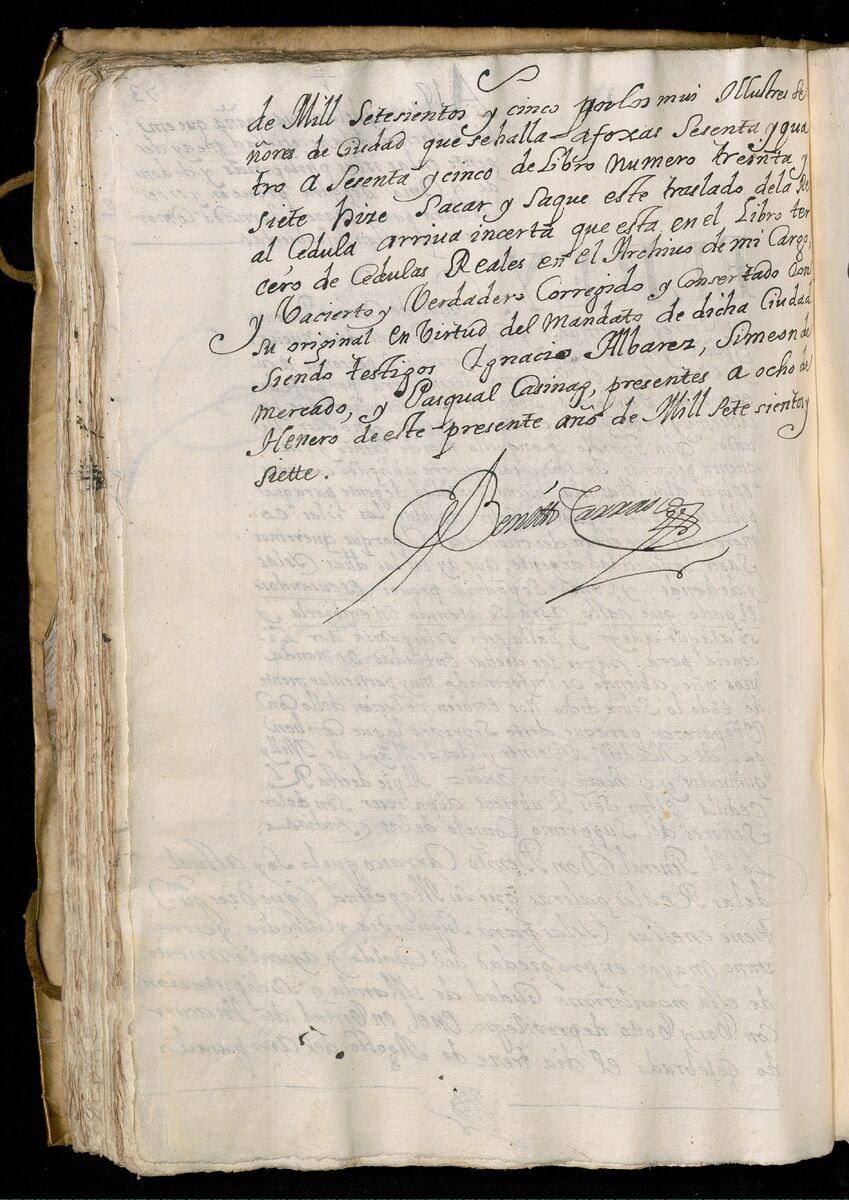 de Mill Setesientos y cinco por los mui Illustres se
ñores de Ciudad que se halla a foxas Sesenta y qua
tro a Sesenta y cinco de Libro numero treinta y
siete hize Sacar y Saque este traslado dela Re
al Cedula arriva incerta que esta en el Libro ter
cero de Cedulas Reales en el Archivo de mi Cargo,
y Vacierto y Verdadero Corregido y Consertado Con
su original en Virtud del Mandato de dicha Ciudad
Siendo testigos Ignacio Albarez, Simeon de
mercado, y Pasqual Casinag, presentes a ocho de
Henero de este presente año de Mill Setesientos y
siette.
Benito Carrasco